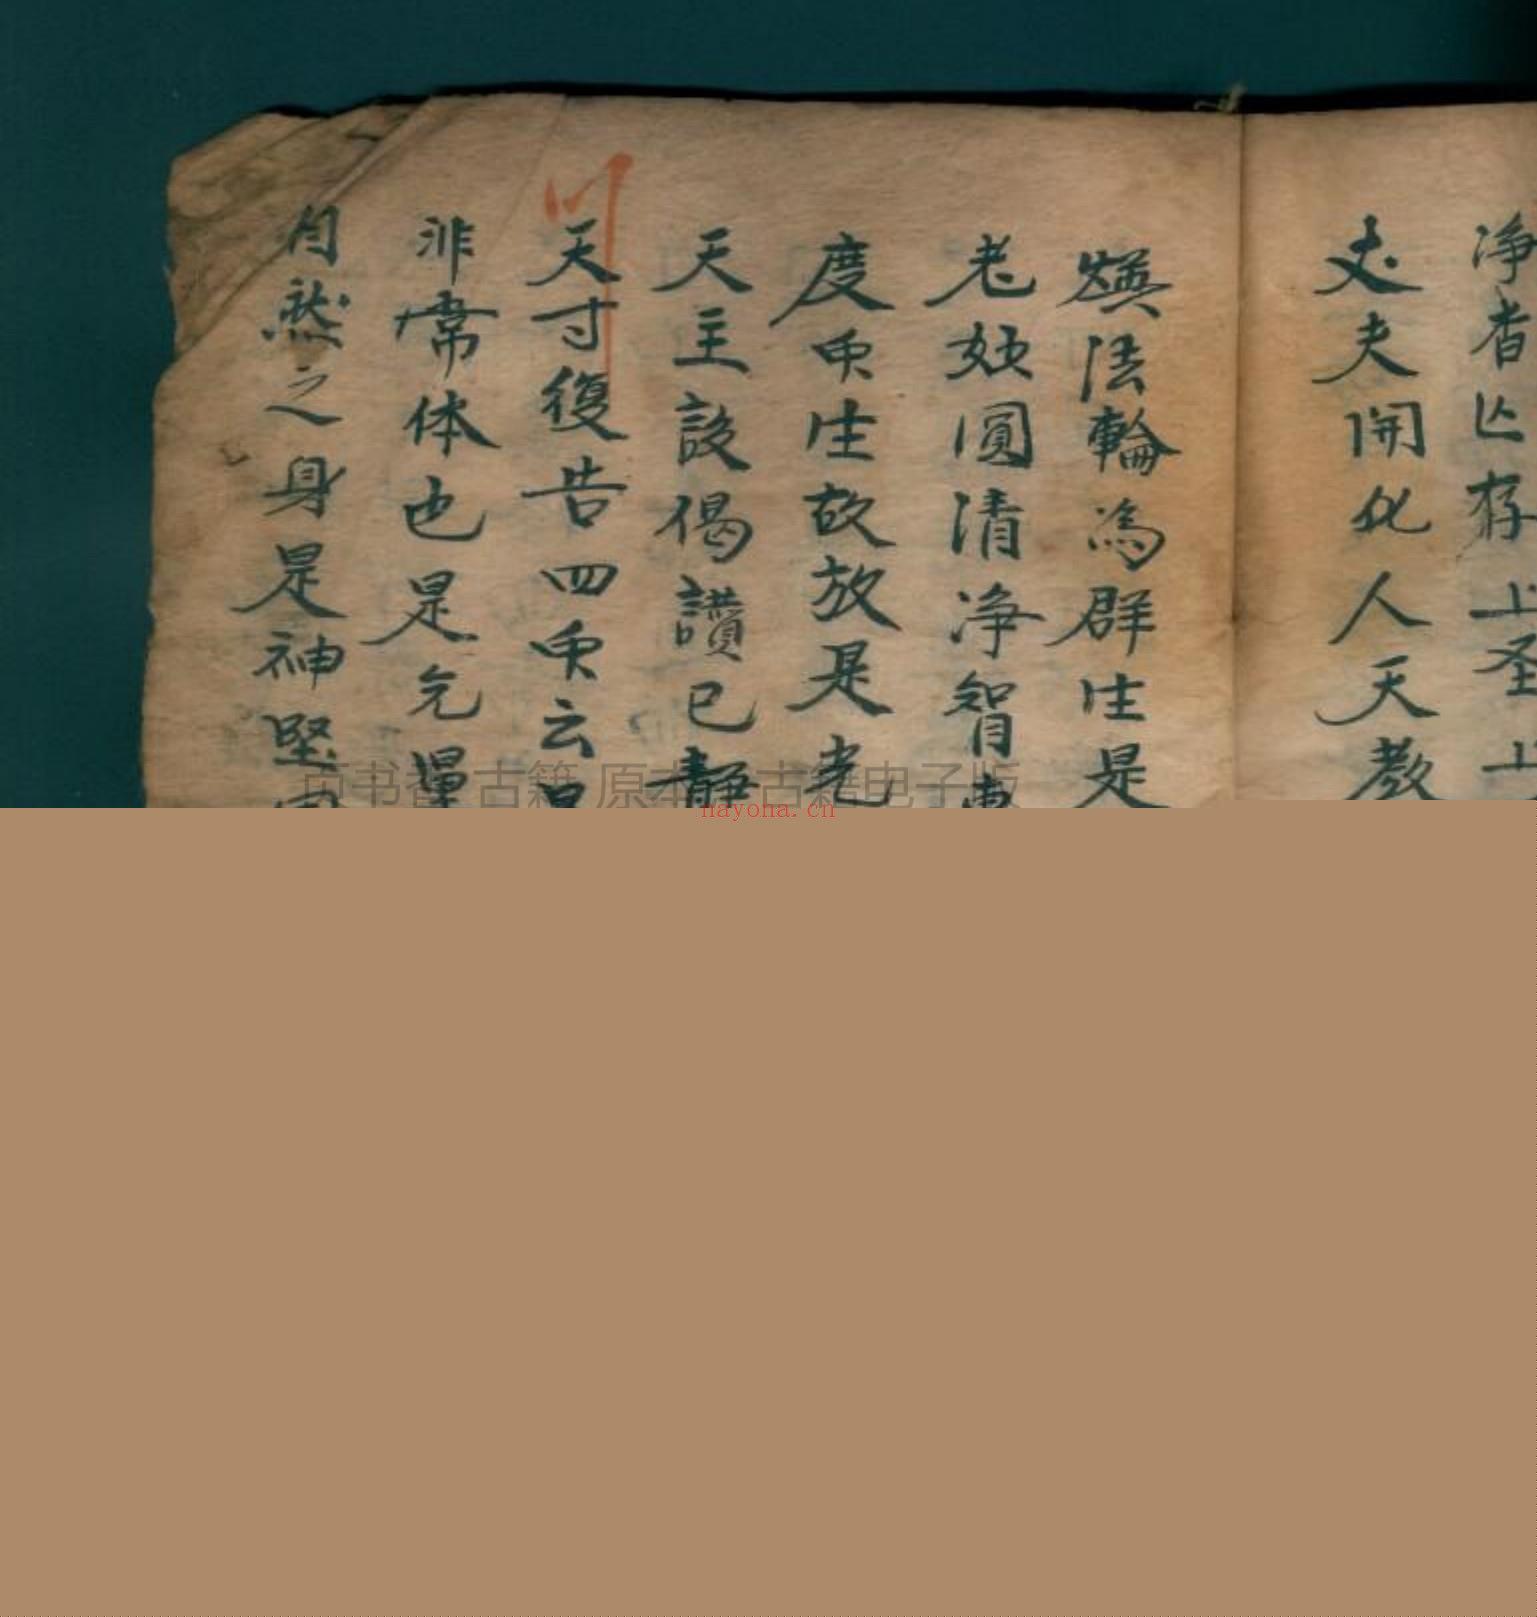 淨者亾存上圣上
丈夫開化人天教
煥法輪為群生是
老妙圓清淨智惠
度众生故放是光
天主設偈讃已靜
天寸復告四众云是
非常体也是无量
自然之身是神堅固
百书香古籍 原本 古籍电子版
nayona.cn